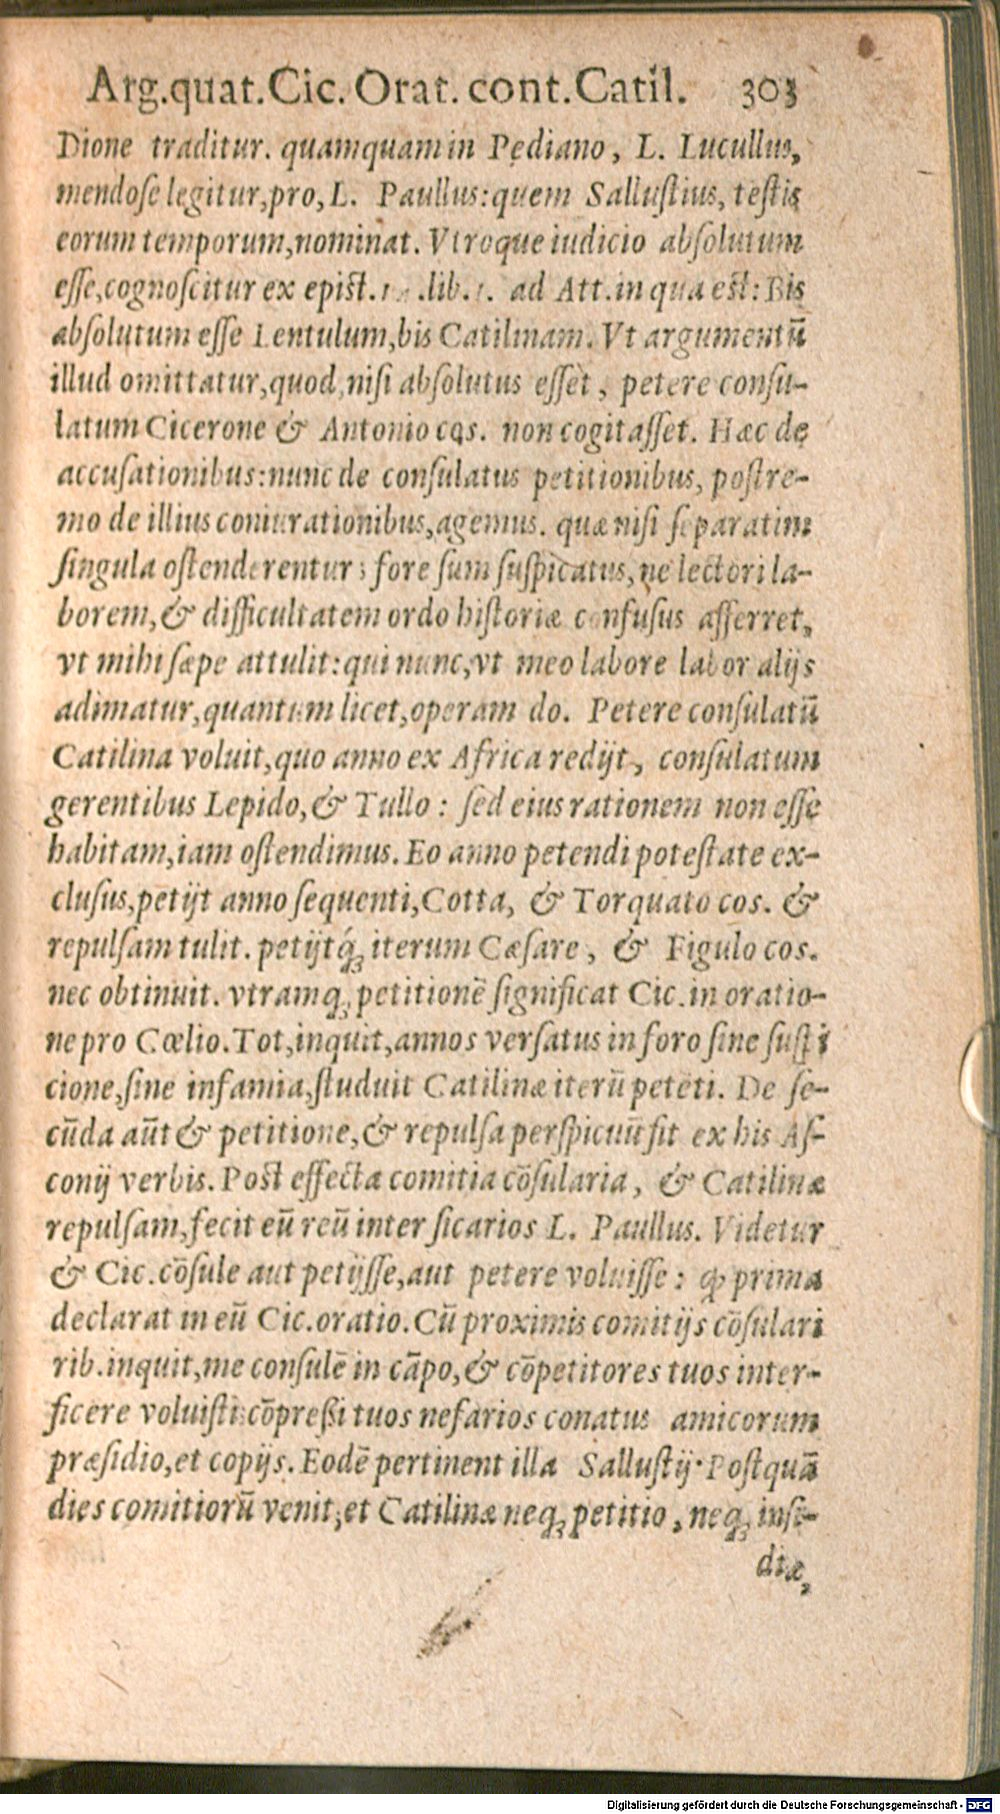 Arg.quat.Cic. Orat. cont.Catil. 303
Dione traditur. quamquam in Pediano, L. Lucullus,
mendoſe legitur,pro,L. Paullus:quem Salluſtius, teſtis
eorum temporum,nominat. Vtroque iudicio abſolutum
eſſe,cognoſcitur ex epiſt. .lib. . ad Att.in qua eſt: Bis
abſolutum eſſe Lentulum,bis Catilinam. Vt argumentū
illud omittatur,quod,niſi abſolutus eſſet, petere conſu-
latum Cicerone & Antonio cos. non cogitaſſet. Hæc de
accuſationibus:nunc de conſulatus petitionibus, poſtre-
mo de illius coniurationibus,agemus. quæ niſi ſeparatim
ſingula oſtenderentur; fore ſum ſuſpicatus, ne lectori la-
borem,& difficultatem ordo hiſtoriæ confuſus afferret,
vt mihi ſæpe attulit:qui nunc,vt meo labore labor alijs
adimatur,quantum licet,operam do. Petere conſulatū
Catilina voluit,quo anno ex Africa redijt, conſulatum
gerentibus Lepido,& Tullo: ſed eius rationem non eſſe
habitam,iam oſtendimus. Eo anno petendi poteſtate ex-
cluſus,petijt anno ſequenti,Cotta, & Torquato cos. &
repulſam tulit. petijtq́ꝫ iterum Cæſare, & Figulo cos.
nec obtinuit. vtramqꝫ petitionē ſignificat Cic.in oratio-
ne pro Cœlio.Tot,inquit,annos verſatus in foro ſine ſuſpi
cione,ſine infamia,ſtuduit Catilinæ iterū petēti. De ſe-
cūda aūt & petitione,& repulſa perſpicuū ſit ex his Aſ-
conij verbis. Poſt effecta comitia cōſularia, & Catilinæ
repulſam,fecit eū reū inter ſicarios L. Paullus. Videtur
& Cic.cōſule aut petijſſe,aut petere voluiſſe: ꝙ prima
declarat in eū Cic.oratio.Cū proximis comitijs cōſulari
rib.inquit,me conſulē in cāpo,& cōpetitores tuos inter-
ficere voluiſti:cōpreßi tuos nefarios conatus amicorum
præſidio,et copijs. Eodē pertinent illa Salluſtij·Poſtquā
dies comitiorū venit,et Catilinæ neqꝫ petitio, neqꝫ inſi-
diæ,
Digitalisierung gefördert durch die Deutsche Forschungsgemeinschaft - DFG